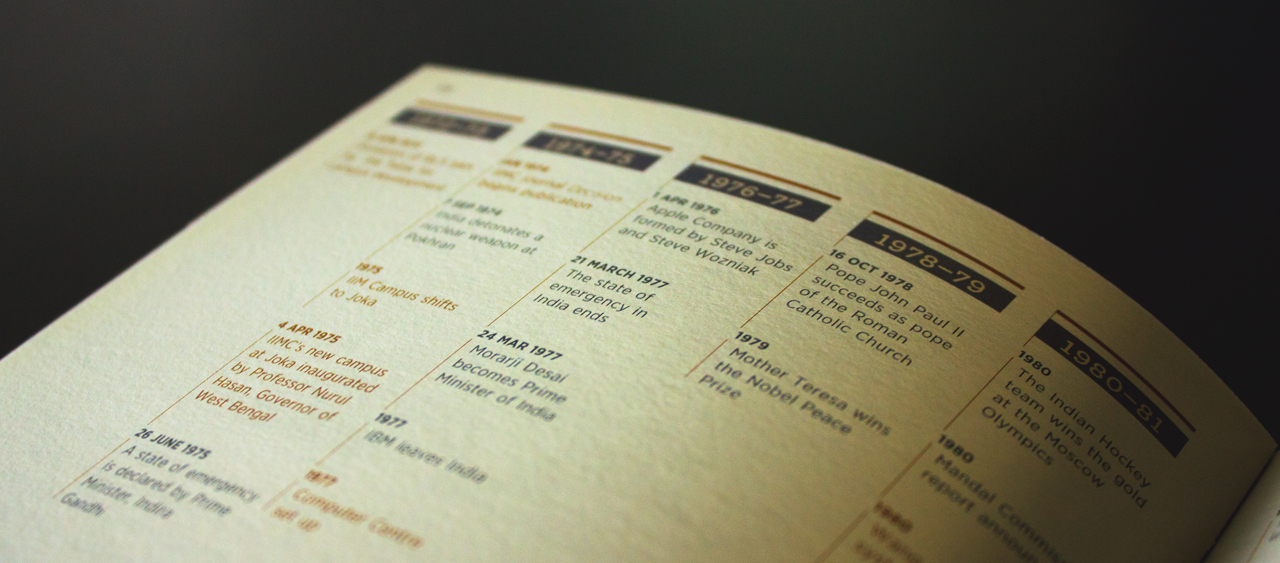 1974–75
JIMC Journal Decision
begins publication
1 SEP 1974
India detonates a
nuclear weapon at
Pokhran
1975
IIM Campus shifts
to Joka
4 APR 1975
IIMC's new campus
at Joka inaugurated
by Professor Nurul
Hasan, Governor of
West Bengal
26 JUNE 1975
A state of emergency
is declared by Prime
Minister, Indira
Gandhi
1976–77
1 APR 1976
Apple Company is
formed by Steve Jobs
and Steve Wozniak
21 MARCH 1977
The state of
emergency in
India ends
24 MAR 1977
Morarji Desai
becomes Prime
Minister of India
1977
IBM leaves India
1977
Computer Centre
set up
1978–79
16 OCT 1978
Pope John Paul II
succeeds as pope
of the Roman
Catholic Church
1979
Mother Teresa wins
the Nobel Peace
Prize
1980–81
1980
The Indian Hockey
team wins the gold
at the Moscow
Olympics
1980
Mandal Commis
report announ
1980